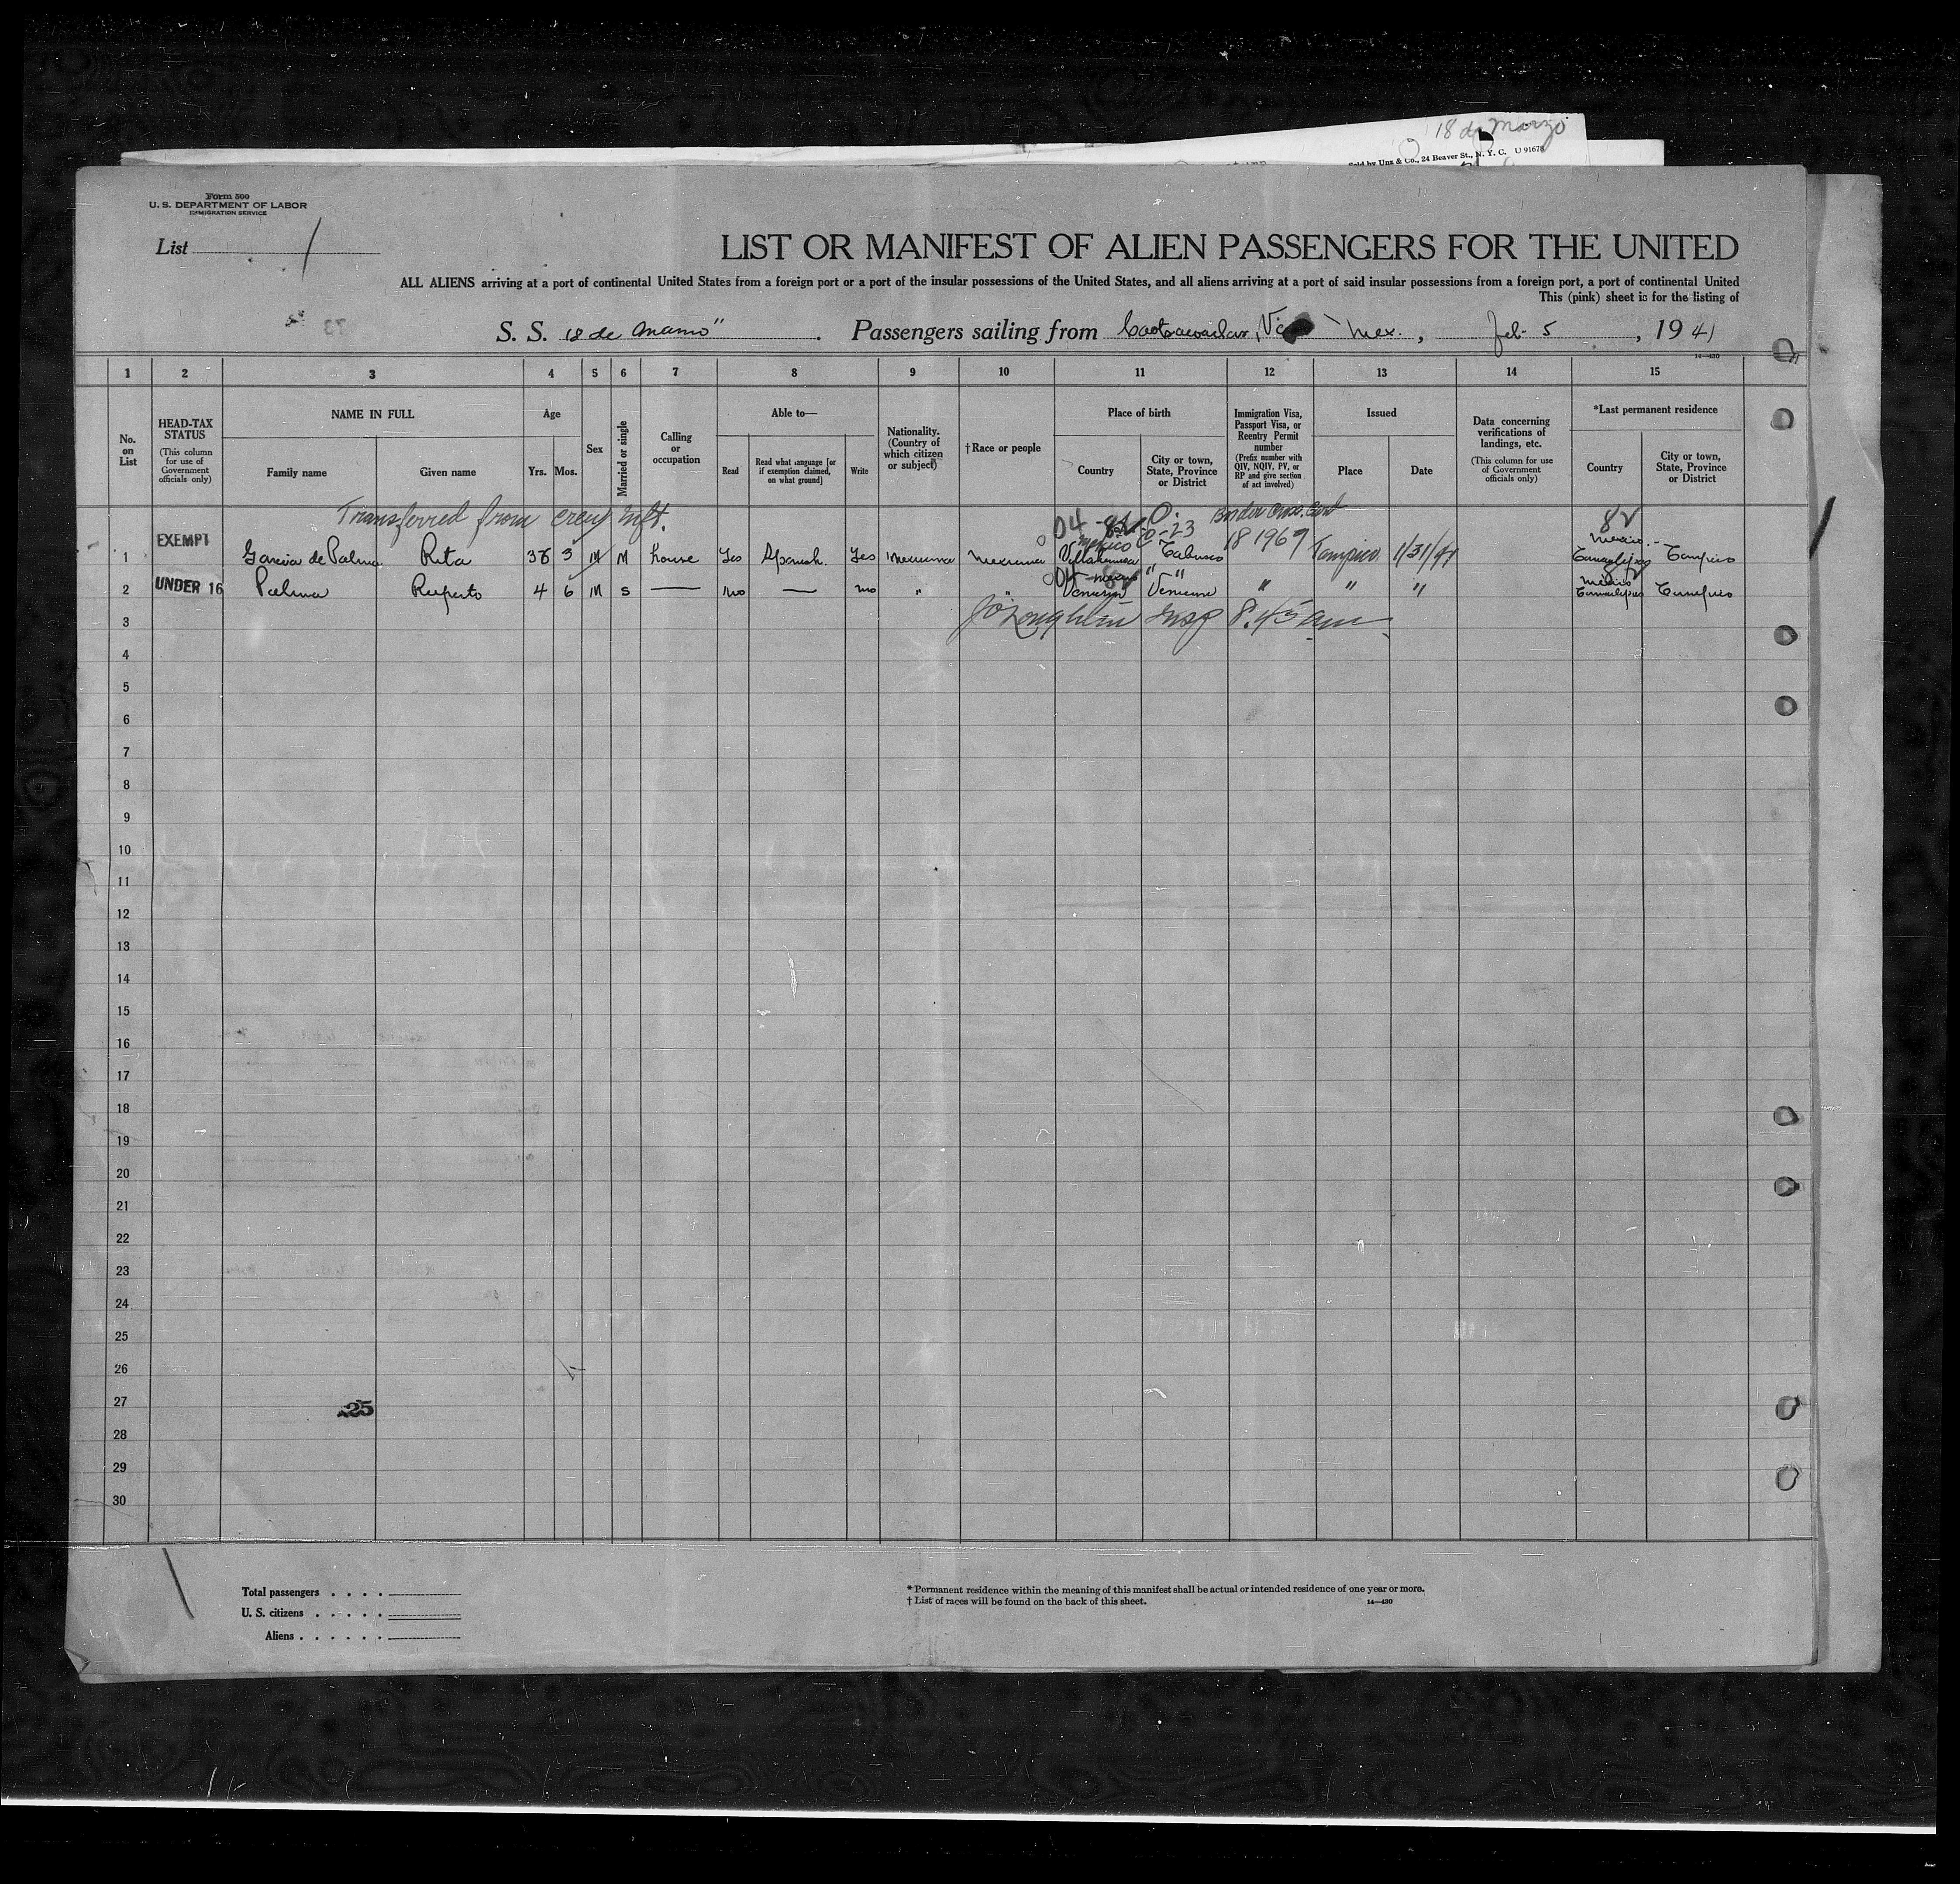 18 de Marzo
Sold by Unz & Co., 24 Beaver St., N. Y. C. U 91678
Form 500
U. S. DEPARTMENT OF LABOR
IMMIGRATION SERVICE
List 1
LIST OR MANIFEST OF ALIEN PASSENGERS FOR THE UNITED
ALL ALIENS arriving at a port of continental United States from a foreign port or a port of the insular possessions of the United States, and all aliens arriving at a port of said insular possessions from a foreign port, a port of continental United
This (pink) sheet is for the listing of
S. S. 18 de Marzo". Passengers sailing from Mex., Feb 5, 1941
14—430
1 2 3 4 5 6 7 8 9 10 11 12 13 14 15
No. on List
HEAD-TAX STATUS
(This column for use of Government officials only)
NAME IN FULL
Family name Given name
Age
Yrs. Mos.
Sex
Married or single
Calling or occupation
Able to—
Read
Read what language [or if exemption claimed, on what ground]
Write
Nationality. (Country of which citizen or subject)
†Race or people
Place of birth
Country
City or town, State, Province or District
Immigration Visa, Passport Visa, or Reentry Permit number
(Prefix number with QIV, NQIV, PV, or RP and give section of act involved)
Issued
Place Date
Data concerning verifications of landings, etc.
(This column for use of Government officials only)
*Last permanent residence
Country
City or town, State, Province or District
Transferred from crew mft. 04 0. Border Cross. Cert 8V
Mexico 0-23 Mexico
1 EXEMPT Garcia de Palma Rita 36 3 M M house Yes Spanish. Yes Mexicana Mexicana Villahermosa Tabasco 181969 Tampico 1/31/41 Tamaulipas Tampico
04 Mexico " Mexico
2 UNDER 16 Palma Ruperto 4 6 M S — No — No " " " " " Tamaulipas Tampico
3 JO'Loughlin Insp 8.45 am
4
5
6
7
8
9
10
11
12
13
14
15
16
17
18
19
20
21
22
23
24
25
26
27 25
28
29
30
Total passengers . . . .
U. S. citizens . . . . .
Aliens . . . . . .
* Permanent residence within the meaning of this manifest shall be actual or intended residence of one year or more.
† List of races will be found on the back of this sheet. 14—430